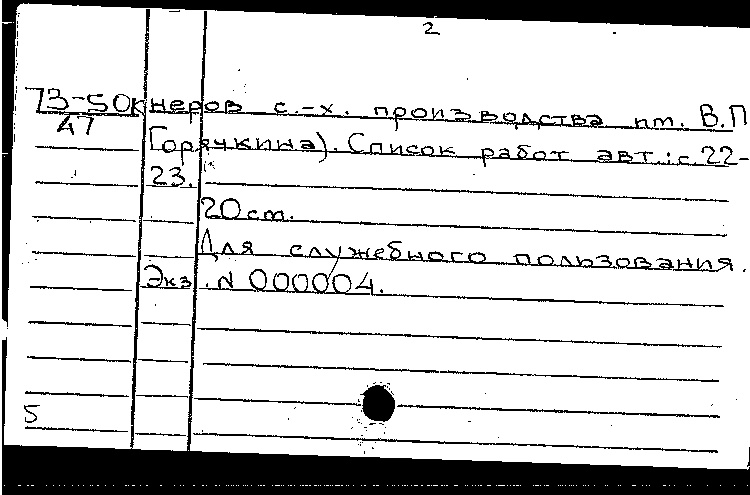 2
73-50кнеров с.-х. производства им. В.П
47 Горячкина). Список работ авт.: с. 22-
23.
20 см.
Для служебного пользования.
Экз. N 000004.
5